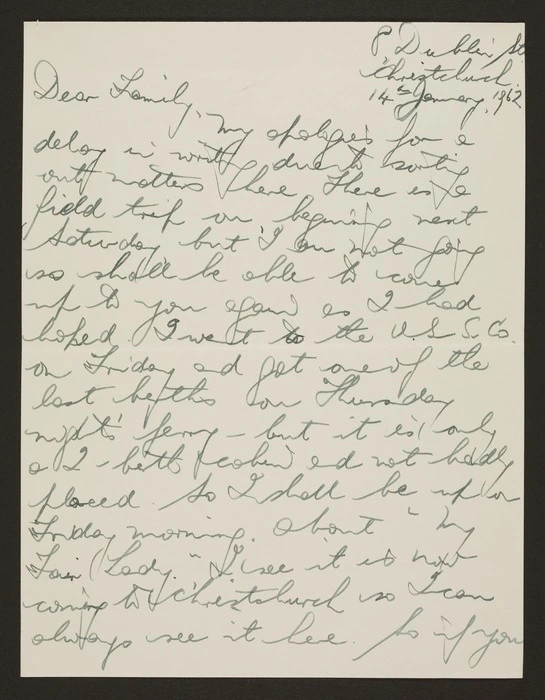 8 Dublin St
Christchurch.
14th January, 1962
Dear Family,
My apologies for a
delay in writing due to sorting
out matters here. There is a
field trip on beginning next
Saturday but I am not going
so shall be able to come
up to you again as I had
hoped. I went to the U.S.S. Co.
on Friday and got one of the
last berths on Thursday
night's ferry – but it is only
a 2-berth cabin and not badly
placed. So I shall be up on
Friday morning. About "My
Fair Lady." I see it is now
coming to Christchurch so I can
always see it here. So if you